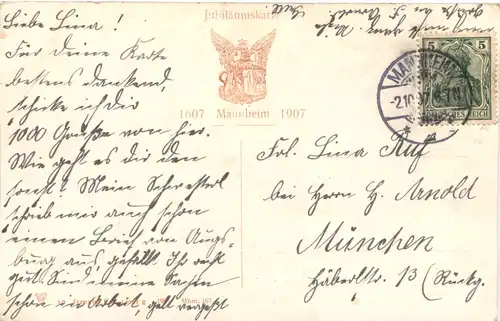 Liebe Lina!
Für deine Karte
bestens dankend,
schicke ich dir
1000 Grüße von hier.
Wie geht es dir den
sonst? Mein Schwesterl
schrieb mir auch schon
einen Bericht von Augs-
burg aus gefällt. Ihr
gut. Sind meine Sachen
schon in Arbeit, gelt vergeßt
Jubiläumskarte
1607 Mannheim 1907
MANNHEIM
-2.10.07
5 5
DEUTSCHES REICH
Frl. Lina Ruf
bei Herrn H. Arnold
München
Häberlstr. 13 (Rückg.